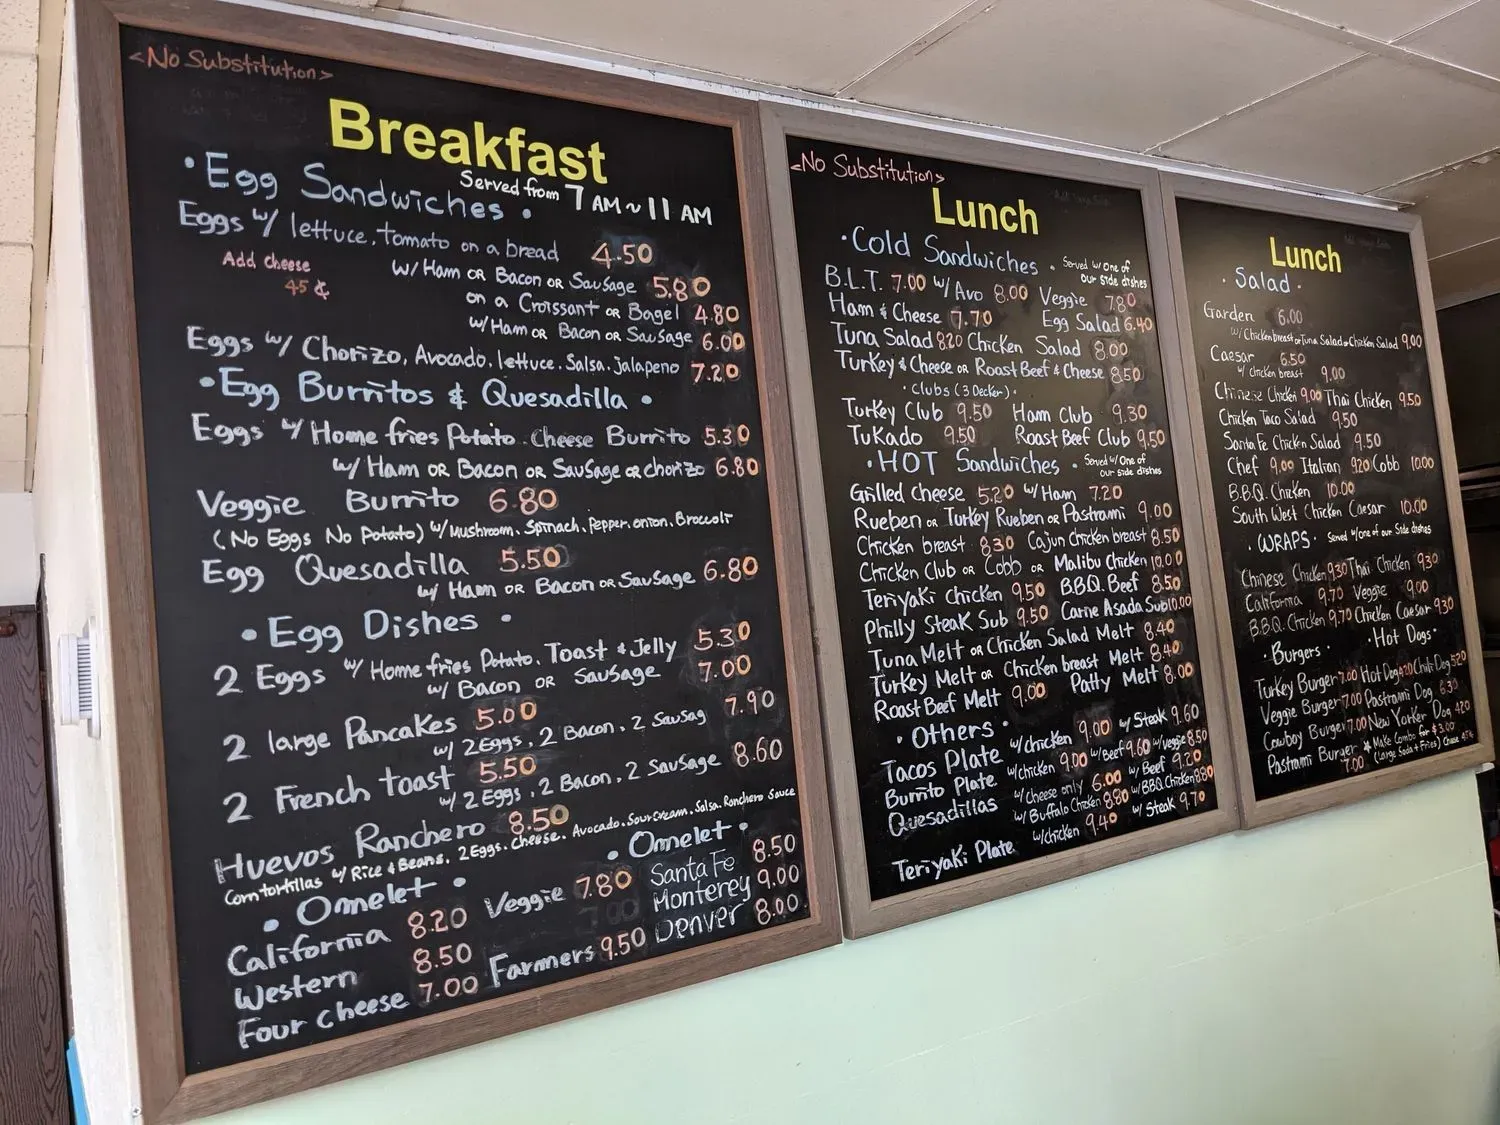 <No Substitution>
Breakfast
Served from 7 AM ~ 11 AM
• Egg Sandwiches •
Eggs w/ lettuce, tomato on a bread 4.50
Add cheese 45¢
w/ Ham OR Bacon OR Sausage 5.80
on a Croissant OR Bagel 4.80
w/ Ham OR Bacon OR Sausage 6.00
Eggs w/ Chorizo, Avocado, lettuce, Salsa, jalapeno 7.20
• Egg Burritos & Quesadilla •
Eggs w/ Home fries Potato Cheese Burrito 5.30
w/ Ham OR Bacon OR Sausage OR chorizo 6.80
Veggie Burrito 6.80
(No Eggs No Potato) w/ Mushroom, Spinach, Pepper, onion, Broccoli
Egg Quesadilla 5.50
w/ Ham OR Bacon OR Sausage 6.80
• Egg Dishes •
2 Eggs w/ Home fries Potato, Toast & Jelly 5.30
w/ Bacon OR Sausage 7.00
2 large Pancakes 5.00
w/ 2 Eggs, 2 Bacon, 2 Sausag 7.90
2 French toast 5.50
w/ 2 Eggs, 2 Bacon, 2 Sausage 8.60
Huevos Ranchero 8.50
Corn tortillas w/ Rice & Beans, 2 Eggs, Cheese, Avocado, Sour cream, Salsa, Ranchero Sauce
• Omelet •
California 8.20
Western 8.50
Four cheese 7.00
Veggie 7.80
Farmers 9.50
• Omelet •
Santa Fe 8.50
Monterey 9.00
Denver 8.00
<No Substitution>
Lunch
• Cold Sandwiches • Served w/ One of our side dishes
B.L.T. 7.00 w/ Avo 8.00 Veggie 7.80
Ham & Cheese 7.70 Egg Salad 6.40
Tuna Salad 8.20 Chicken Salad 8.00
Turkey & Cheese OR Roast Beef & Cheese 8.50
• Clubs (3 Decker) •
Turkey Club 9.50 Ham Club 9.30
TuKado 9.50 Roast Beef Club 9.50
• HOT Sandwiches • Served w/ One of our side dishes
Grilled cheese 5.20 w/ Ham 7.20
Rueben OR Turkey Rueben OR Pastrami 9.00
Chicken breast 8.30 Cajun Chicken breast 8.50
Chicken Club OR Cobb OR Malibu Chicken 10.00
Teriyaki Chicken 9.50 B.B.Q. Beef 8.50
Philly Steak Sub 9.50 Carne Asada Sub 10.00
Tuna Melt OR Chicken Salad Melt 8.40
Turkey Melt OR Chicken breast Melt 8.40
Roast Beef Melt 9.00 Patty Melt 8.00
• Others •
Tacos Plate w/ chicken 9.00 w/ Steak 9.60
Burrito Plate w/ chicken 9.00 w/ Beef 9.60 w/ veggie 8.50
Quesadillas w/ cheese only 6.00 w/ Beef 9.20
w/ Buffalo Chicken 8.80 w/ BBQ Chicken 8.80
Teriyaki Plate w/ chicken 9.40 w/ Steak 9.70
Lunch
• Salad •
Garden 6.00
w/ Chicken breast or Tuna Salad or Chicken Salad 9.00
Caesar 6.50
w/ chicken breast 9.00
Chinese Chicken 9.00 Thai Chicken 9.50
Chicken Taco Salad 9.50
Santa Fe Chicken Salad 9.50
Chef 9.00 Italian 9.20 Cobb 10.00
B.B.Q. Chicken 10.00
South West Chicken Caesar 10.00
• WRAPS • Served w/ one of our Side dishes
Chinese Chicken 9.30 Thai Chicken 9.30
California 9.70 Veggie 9.00
B.B.Q. Chicken 9.70 Chicken Caesar 9.30
• Burgers •
Turkey Burger 7.00
Veggie Burger 7.00
Cowboy Burger 7.00
Pastrami Burger 7.00
• Hot Dogs •
Hot Dog 4.20 Chili Dog 5.20
Pastrami Dog 6.30
New Yorker Dog 4.20
* Make Combo for $3.00
(Large Soda + Fries) Cheese 45¢